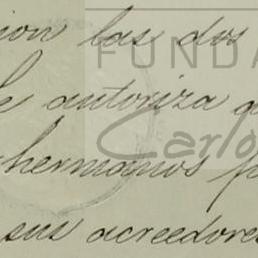 ion las dos
FUNDA
autoriza a
Carlo
hermanos p
sus acreedores